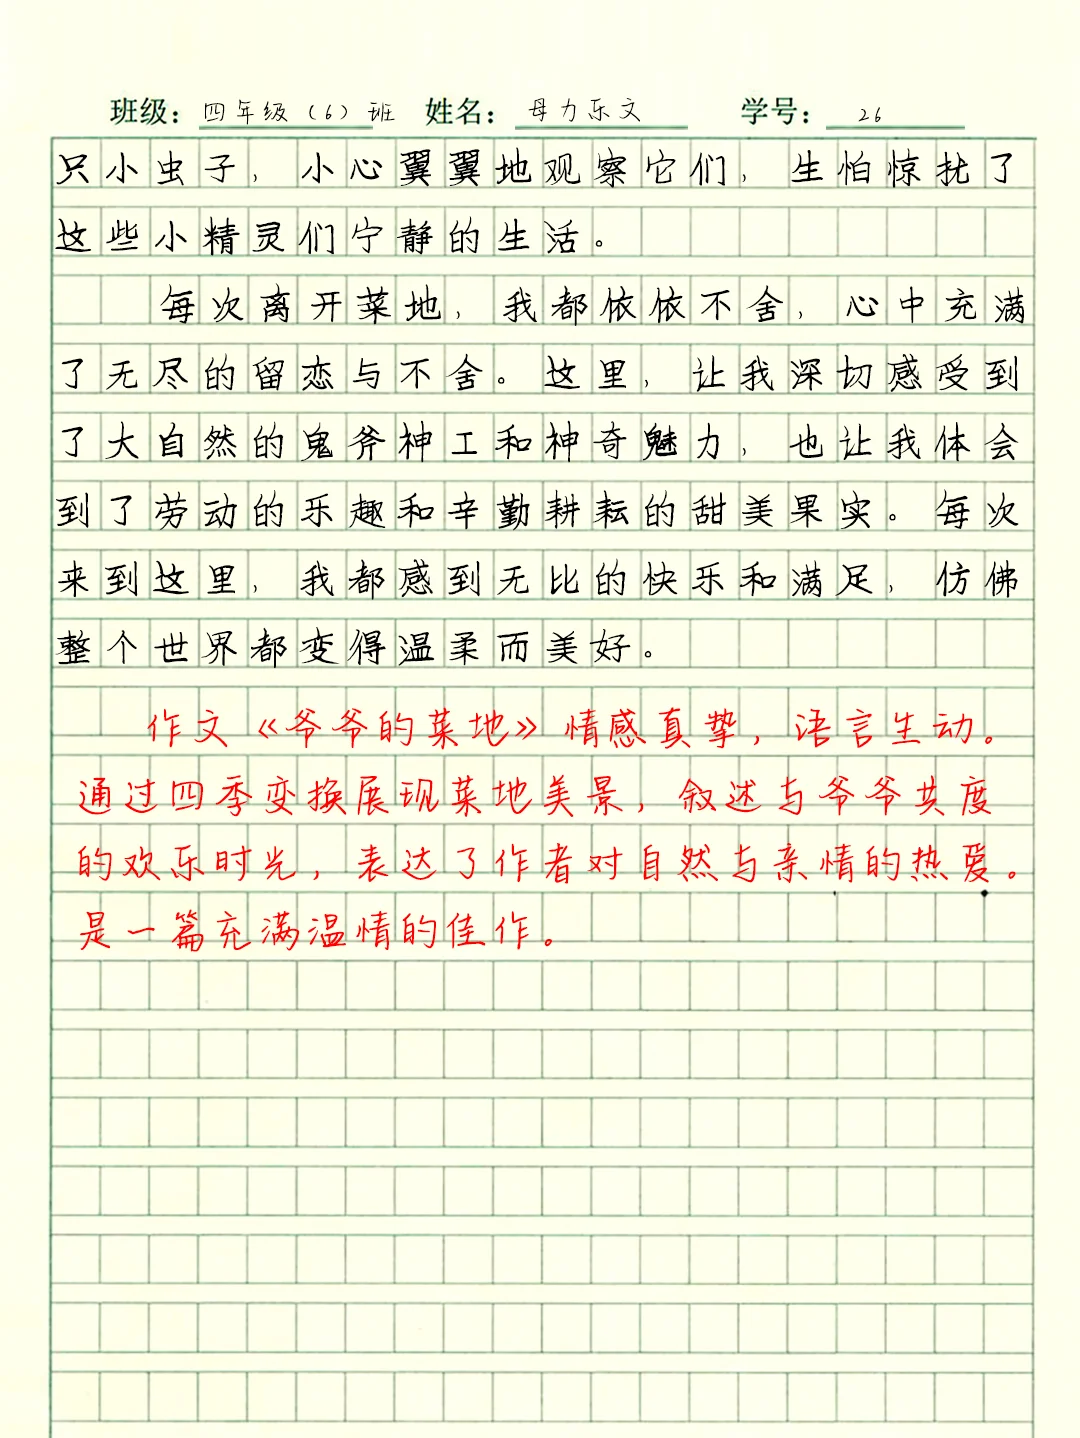 班级：四年级（6）班 姓名：母力乐文 学号：26
只小虫子，小心翼翼地观察它们，生怕惊扰了
这些小精灵们宁静的生活。
每次离开菜地，我都依依不舍，心中充满
了无尽的留恋与不舍。这里，让我深切感受到
了大自然的鬼斧神工和神奇魅力，也让我体会
到了劳动的乐趣和辛勤耕耘的甜美果实。每次
来到这里，我都感到无比的快乐和满足，仿佛
整个世界都变得温柔而美好。
作文《爷爷的菜地》情感真挚，语言生动。
通过四季变换展现菜地美景，叙述与爷爷共度
的欢乐时光，表达了作者对自然与亲情的热爱。
是一篇充满温情的佳作。